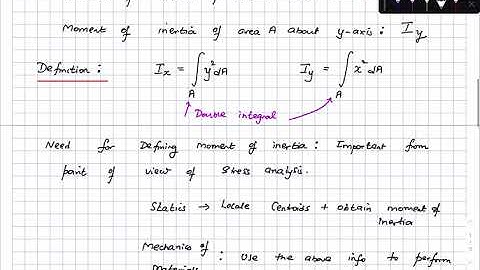 Moment of inertia of area A about y-axis : Iy
Definition : Ix = ∫A y² dA Iy = ∫A x² dA
Double integral
Need for Defining moment of inertia : Important from
point of view of stress analysis.
Statics → Locate Centroids + obtain moment of
inertia
Mechanics of : Use the above info to perform
Materials